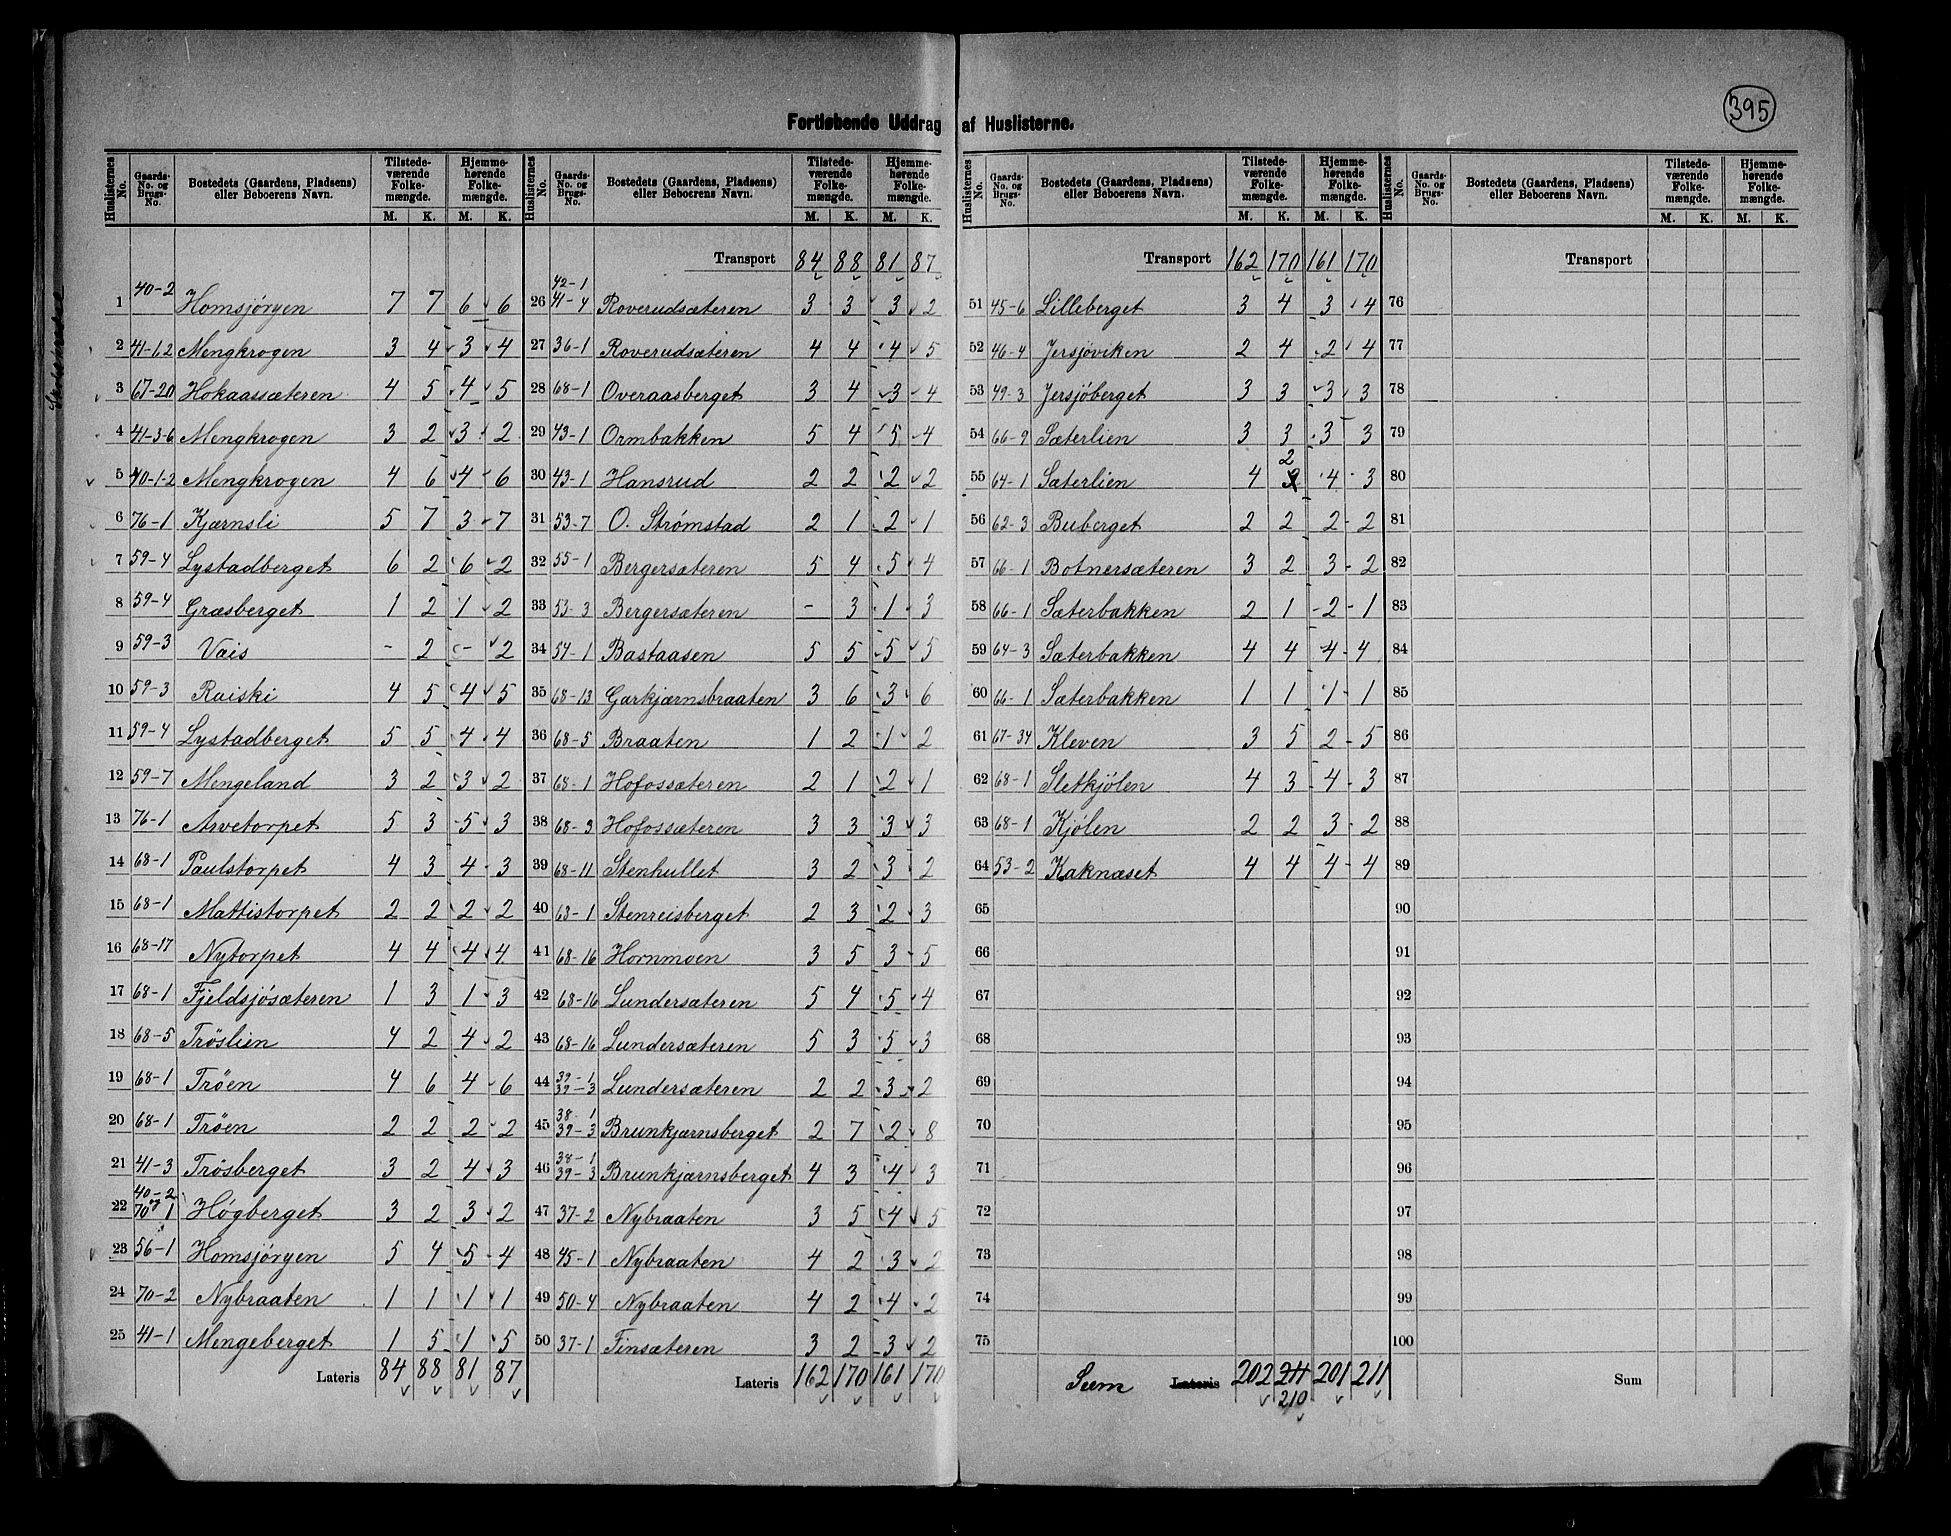 395
Fortløbende Uddrag af Huslisterne.
Huslisternes No. | Gaards-No. og Brugs-No. | Bostedets (Gaardens, Pladsens) eller Beboerens Navn. | Tilstedeværende Folkemængde. M. K. | Hjemmehørende Folkemængde. M. K.
1 40-2 Homsjörgen 7 7 6 6
2 41-62 Mengkrogen 3 4 3 4
3 67-20 Hokaassæteren 4 5 4 5
4 41-3-6 Mengkrogen 3 2 3 2
5 40-1-2 Mengkrogen 4 6 4 6
6 76-1 Kjærnsli 5 7 3 7
7 59-4 Lystadberget 6 2 6 2
8 59-4 Græsberget 1 2 1 2
9 59-3 Vais - 2 - 2
10 59-3 Raiski 4 5 4 5
11 59-4 Lystadberget 5 5 4 4
12 59-7 Mengeland 3 2 3 2
13 76-1 Arvetorpet 5 3 5 3
14 68-1 Paulstorpet 4 3 4 3
15 68-1 Mattistorpet 2 2 2 2
16 68-17 Nytorpet 4 4 4 4
17 68-1 Fjeldsjösæteren 1 3 1 3
18 68-5 Tröslien 4 2 4 2
19 68-1 Tröen 4 6 4 6
20 68-1 Tröen 2 2 2 2
21 41-3 Trösberget 3 2 4 3
22 40-2 og 70-1 Högberget 3 2 3 2
23 56-1 Homsjörgen 5 4 5 4
24 70-2 Nybraaten 1 1 1 1
25 41-1 Mengeberget 1 5 1 5
Lateris 84 88 81 87
Huslisternes No. | Gaards-No. og Brugs-No. | Bostedets (Gaardens, Pladsens) eller Beboerens Navn. | Tilstedeværende Folkemængde. M. K. | Hjemmehørende Folkemængde. M. K.
Transport 84 88 81 87
26 42-1 41-4 Roverudsæteren 3 3 3 2
27 36-1 Roverudsæteren 4 4 4 5
28 68-1 Overaasberget 3 4 3 4
29 43-1 Ormbakken 5 4 5 4
30 43-1 Hansrud 2 2 2 2
31 53-7 O. Strömstad 2 1 2 1
32 55-1 Bergersæteren 5 4 5 4
33 53-3 Bergersæteren - 3 1 3
34 54-1 Bastaasen 5 5 5 5
35 68-13 Garkjærnsbraaten 3 6 3 6
36 68-5 Braaten 1 2 1 2
37 68-1 Hofossæteren 2 1 2 1
38 68-3 Hofossæteren 3 3 3 3
39 68-11 Stenhullet 3 2 3 2
40 63-1 Stenreisberget 2 3 2 3
41 68-16 Hornmoen 3 5 3 5
42 68-16 Lundersæteren 5 4 5 4
43 68-16 Lundersæteren 5 3 5 3
44 39-1 39-3 Lundersæteren 2 2 3 2
45 38-1 39-3 Brunkjærnsberget 2 7 2 8
46 38-1 39-3 Brunkjærnsberget 4 3 4 3
47 37-2 Nybraaten 3 5 4 5
48 45-1 Nybraaten 4 2 3 2
49 50-4 Nybraaten 4 2 4 2
50 37-1 Finsæteren 3 2 3 2
Lateris 162 170 161 170
Huslisternes No. | Gaards-No. og Brugs-No. | Bostedets (Gaardens, Pladsens) eller Beboerens Navn. | Tilstedeværende Folkemængde. M. K. | Hjemmehørende Folkemængde. M. K.
Transport 162 170 161 170
51 45-6 Lilleberget 3 4 3 4
52 46-4 Jersjöviken 2 4 2 4
53 49-3 Jersjöberget 3 3 3 3
54 66-9 Sæterlien 3 3 3 3
55 64-1 Sæterlien 4 2 4 3
56 62-3 Buberget 2 2 2 2
57 66-1 Botnersæteren 3 2 3 2
58 66-1 Sæterbakken 2 1 2 1
59 64-3 Sæterbakken 4 4 4 4
60 66-1 Sæterbakken 1 1 1 1
61 67-34 Kleven 3 5 2 5
62 68-1 Sletkjölen 4 3 4 3
63 68-1 Kjölen 2 2 3 2
64 53-2 Kaknæset 4 4 4 4
65
66
67
68
69
70
71
72
73
74
75
Sum Lateris 202 211 201 211
210
Huslisternes No. | Gaards-No. og Brugs-No. | Bostedets (Gaardens, Pladsens) eller Beboerens Navn. | Tilstedeværende Folkemængde. M. K. | Hjemmehørende Folkemængde. M. K.
Transport
76
77
78
79
80
81
82
83
84
85
86
87
88
89
90
91
92
93
94
95
96
97
98
99
100
Sum